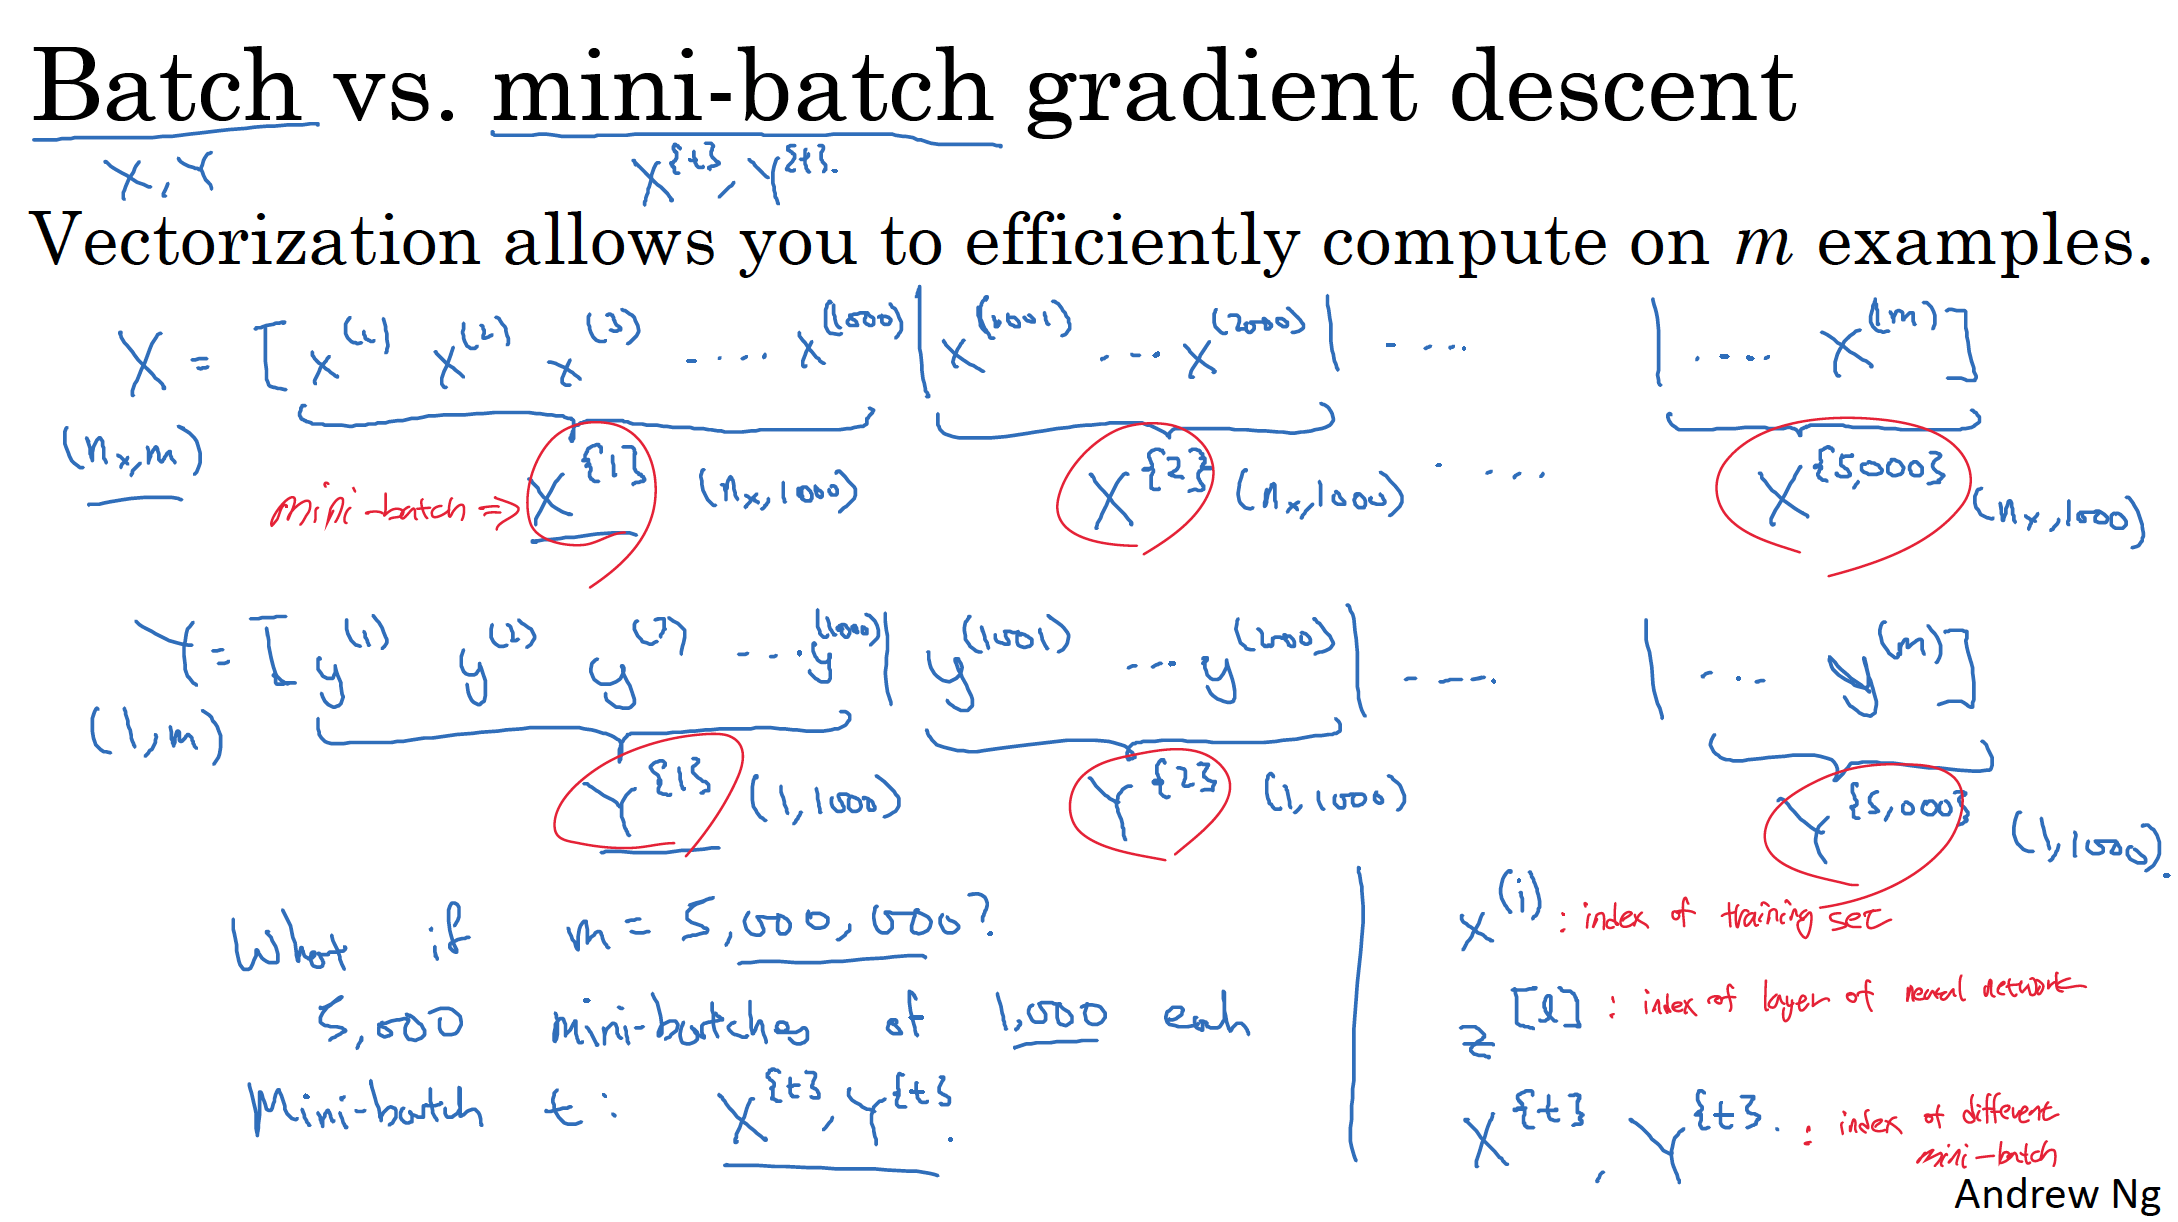 Batch vs. mini-batch gradient descent
X, Y X^{t}, Y^{t}.
Vectorization allows you to efficiently compute on m examples.
X = [x^(1) x^(2) x^(3) .... x^(1000) | x^(1001) ... x^(2000) | .... | .... x^(m)]
(n_x, m)
mini-batch => X^{1} (n_x, 1000) X^{2} (n_x, 1000) . ... X^{5,000} (n_x, 1000)
Y = [y^(1) y^(2) y^(3) ... y^(1000) | y^(1001) ... y^(2000) | .... | ... y^(m)]
(1, m)
Y^{1} (1, 1000) Y^{2} (1, 1000) Y^{5,000} (1, 1000).
What if m = 5,000,000?
5,000 mini-batches of 1,000 each
Mini-batch t: X^{t}, Y^{t}.
x^(i) : index of training set
z^[l] : index of layer of neural network
X^{t}, Y^{t}. : index of different
mini-batch
Andrew Ng